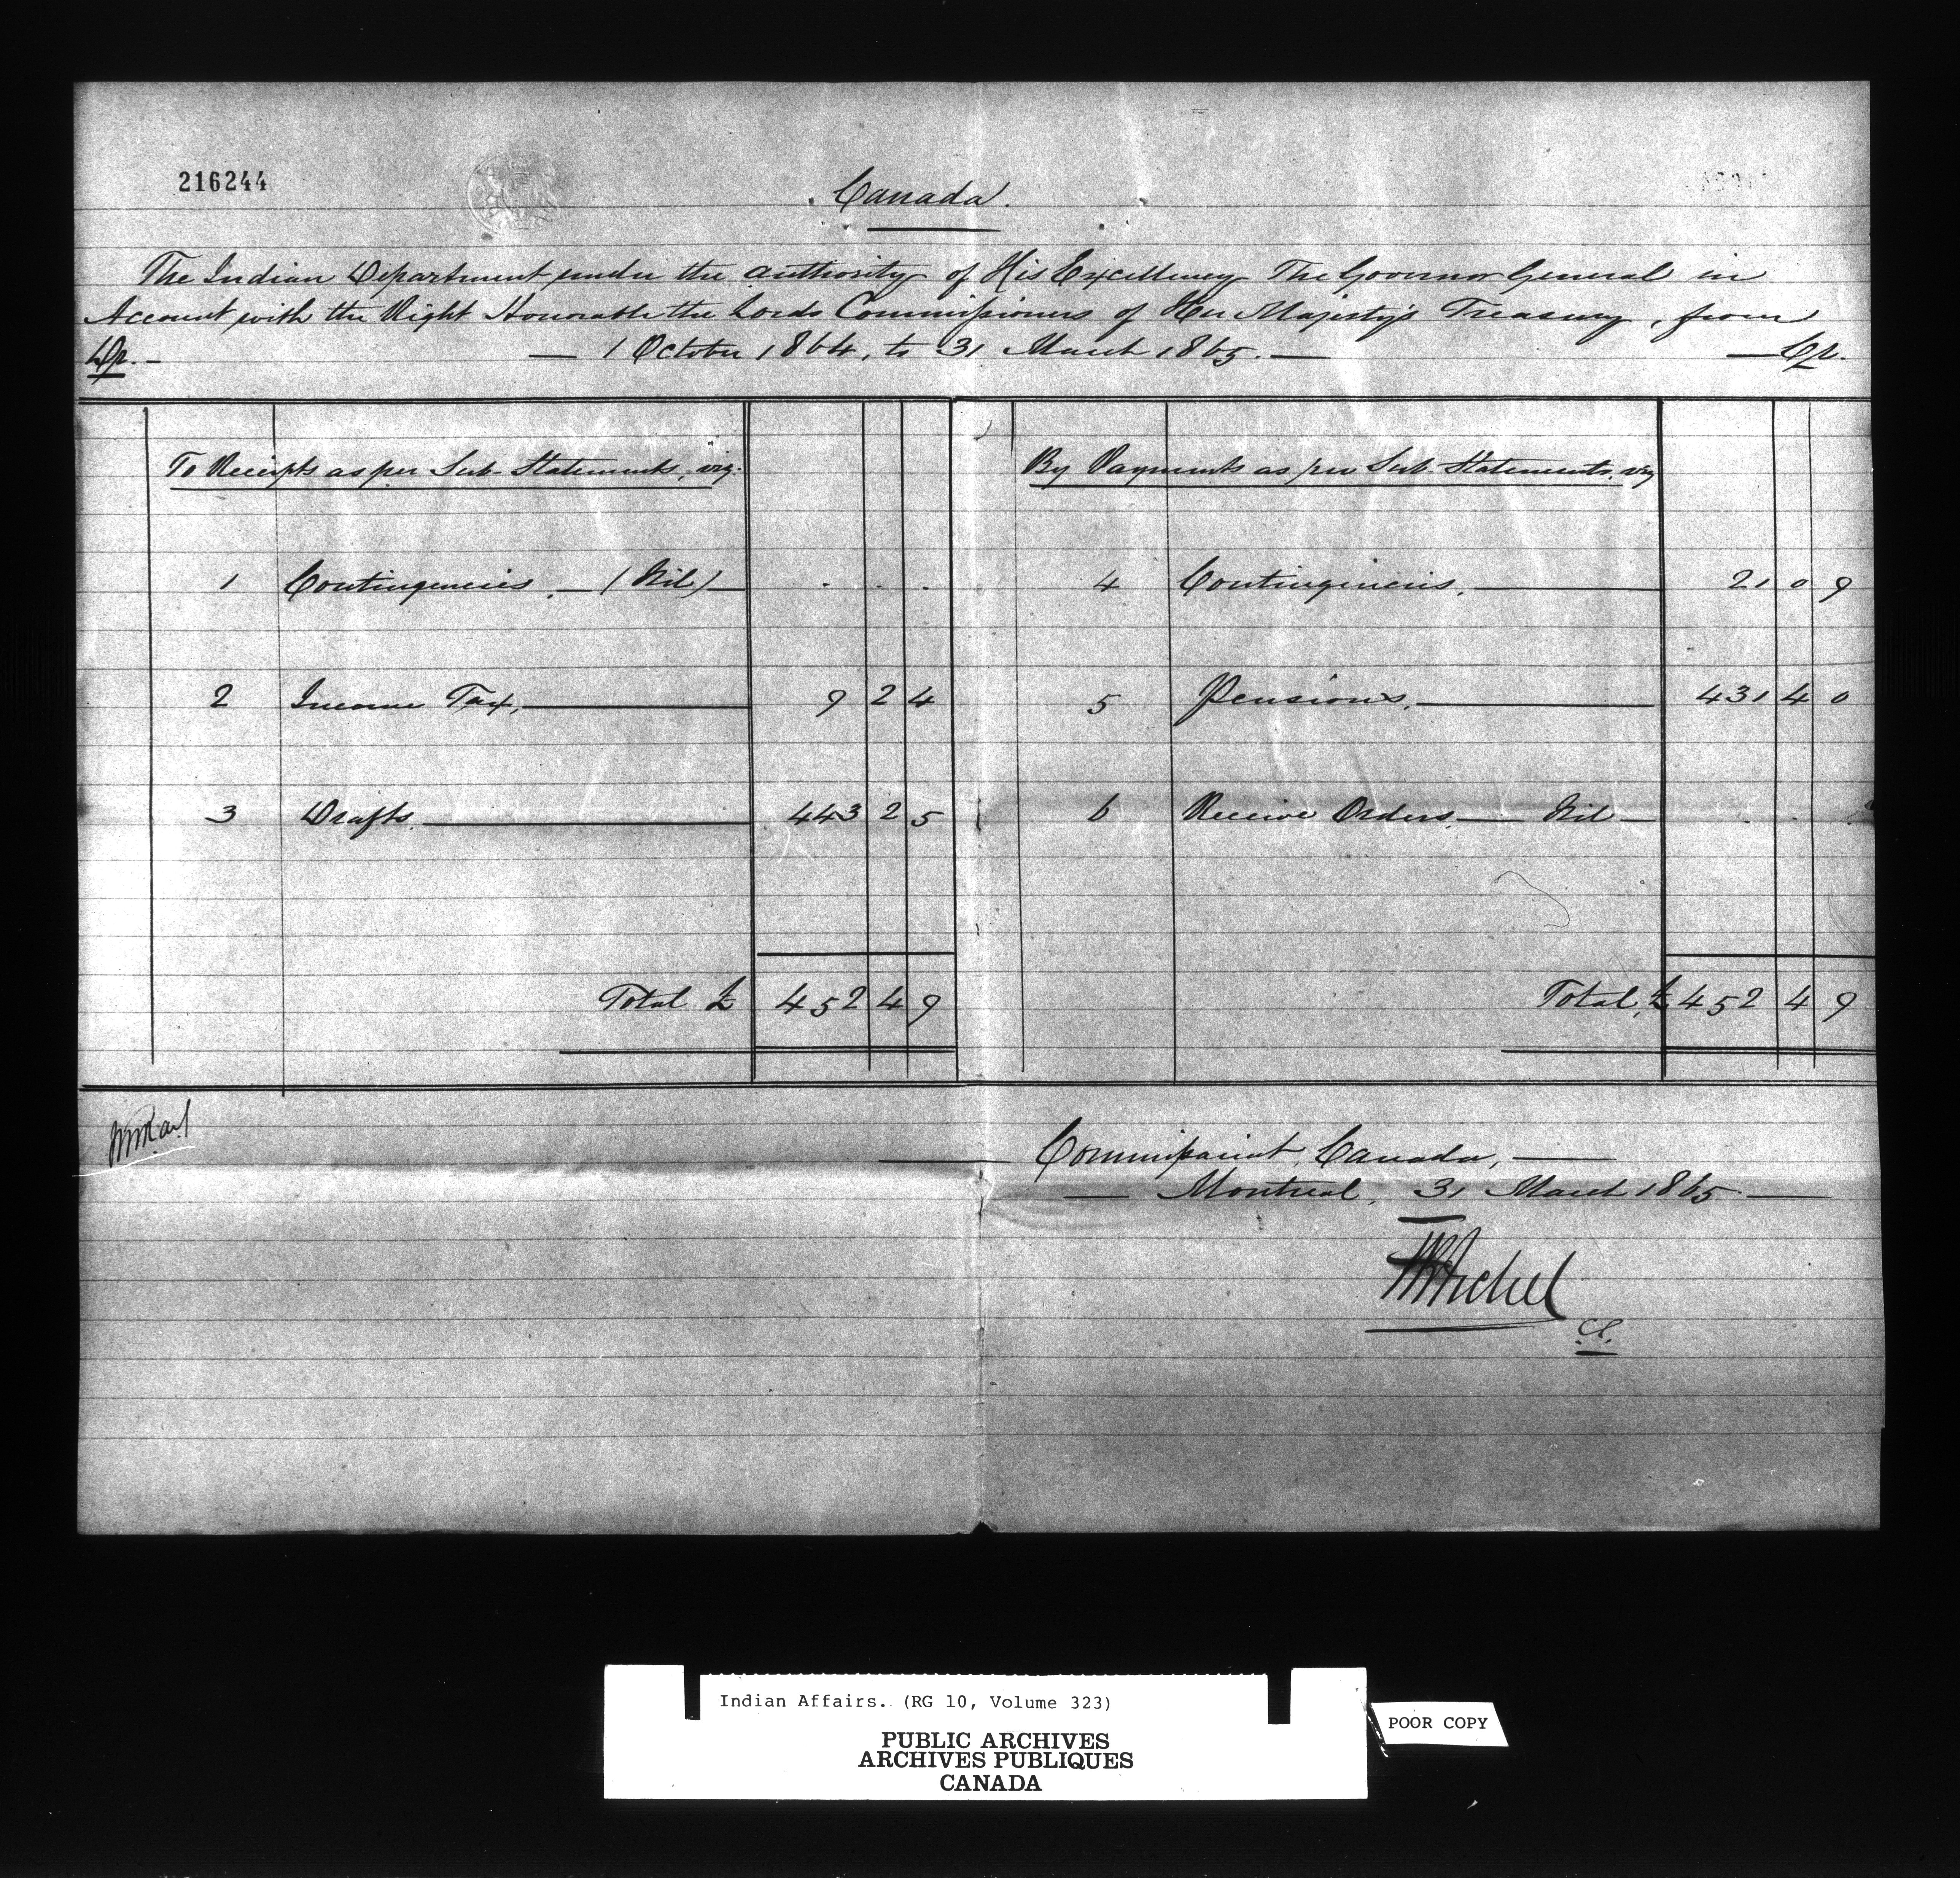 216244
Canada.
The Indian Department under the authority of His Excellency The Governor General in
Account with the Right Honorable the Lords Commissioners of Her Majesty's Treasury, from
Dr. — 1 October 1864, to 31 March 1865. — Cr.
To Receipts as per Sub. Statements, viz.
1 Contingencies. — (Nil) — . . .
2 Income Tax, 9 2 4
3 Drafts. 443 2 5
Total £ 452 4 9
By Payments as per Sub. Statements, viz
4 Contingencies. 21 0 9
5 Pensions. 431 4 0
6 Receive Orders. — Nil — . . .
Total, £ 452 4 9
Commissariat, Canada, —
— Montreal, 31 March 1865 —
Indian Affairs. (RG 10, Volume 323)
PUBLIC ARCHIVES
ARCHIVES PUBLIQUES
CANADA
POOR COPY